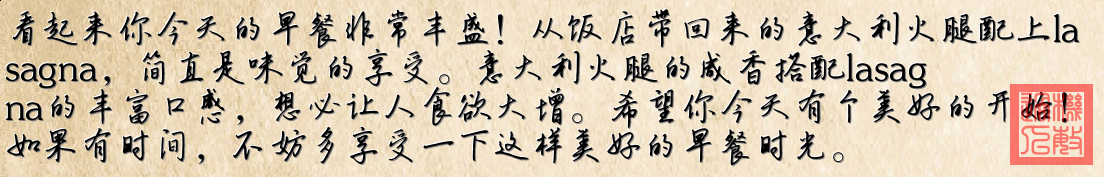 看起来你今天的早餐非常丰盛！从饭店带回来的意大利火腿配上la
sagna，简直是味觉的享受。意大利火腿的咸香搭配lasag
na的丰富口感，想必让人食欲大增。希望你今天有个美好的开始！
如果有时间，不妨多享受一下这样美好的早餐时光。